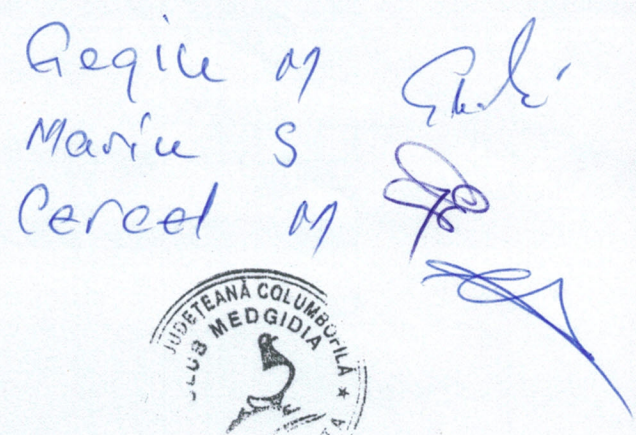 Geqiu M
Mariu S
Cercel M
JUDEȚEANĂ COLUMBOFILĂ
CLUB MEDGIDIA